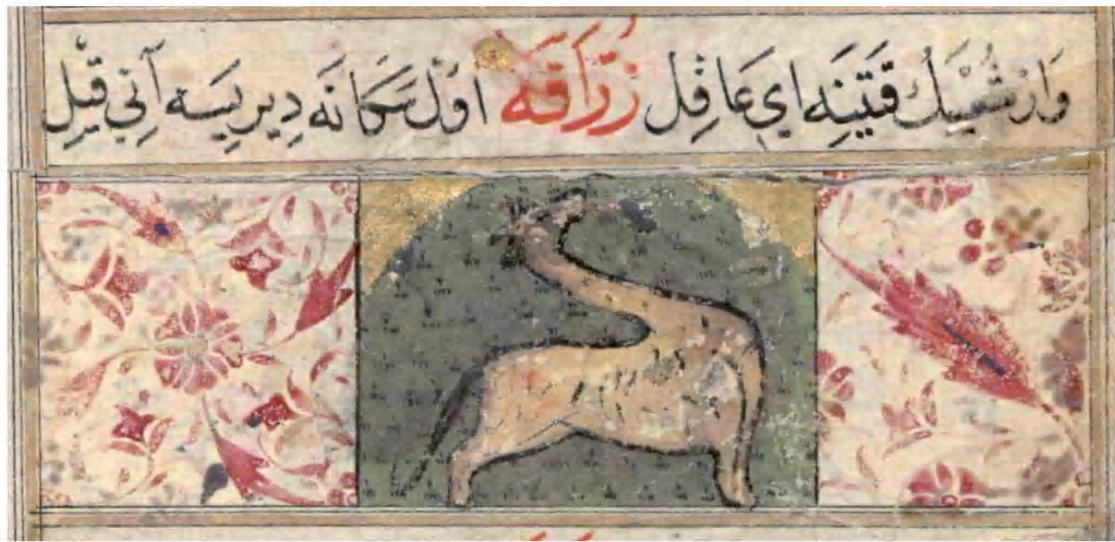 وَارْ شُعَيْبِكْ قَتِينَه اي عَاقِل زُرَافَه اوّل سَكَا نَه دِيرِيسَه آنِي قِيل